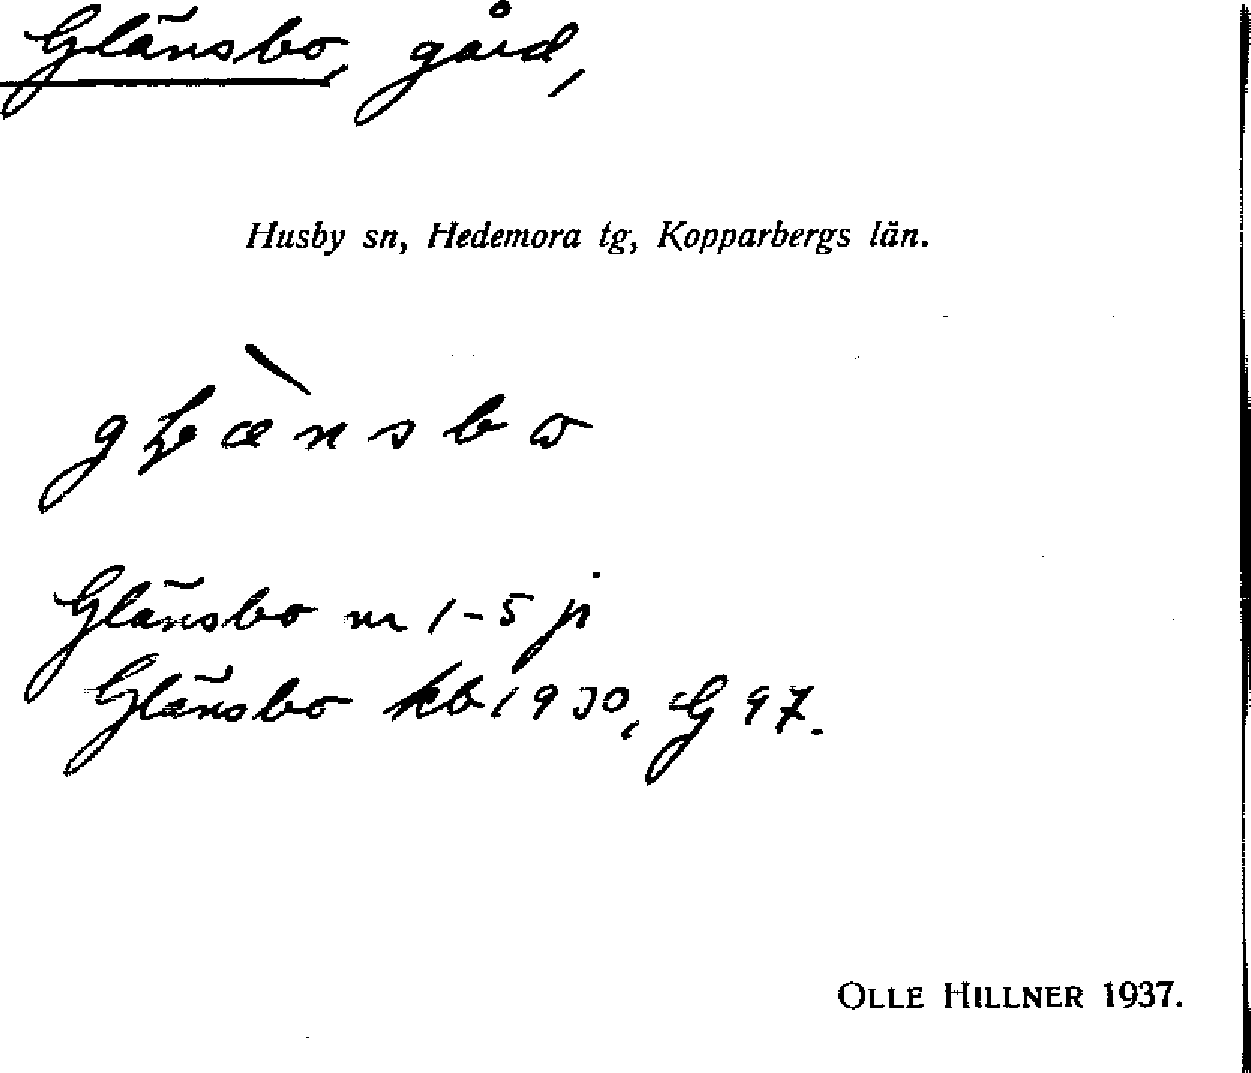 Glänsbo, gård,
Husby sn, Hedemora tg, Kopparbergs län.
Glänsbo nr 1-5 ji
Glänsbo kb 1930, G 97.
OLLE HILLNER 1937.